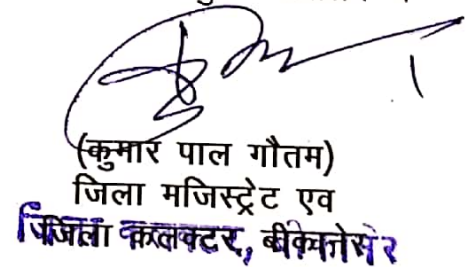 (कुमार पाल गौतम)
जिला मजिस्ट्रेट एव
जिला कलक्टर, बीकानेर